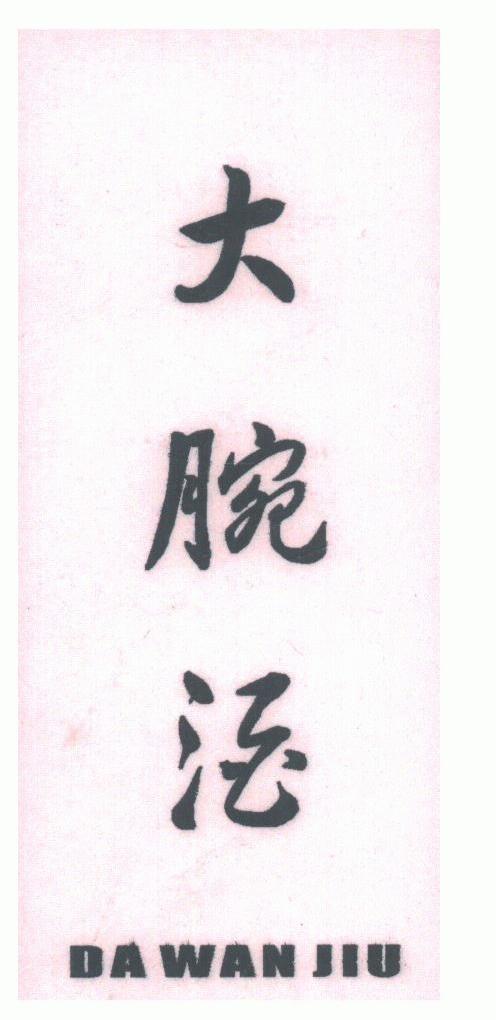 大腕酒
DA WAN JIU